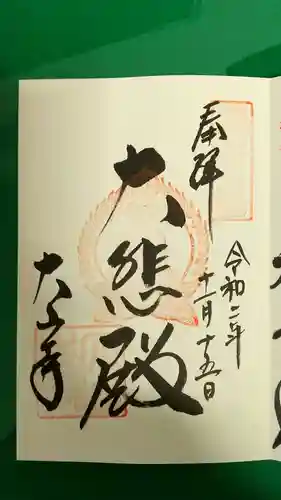 奉拝
令和二年
十一月十五日
大悲殿
大山寺